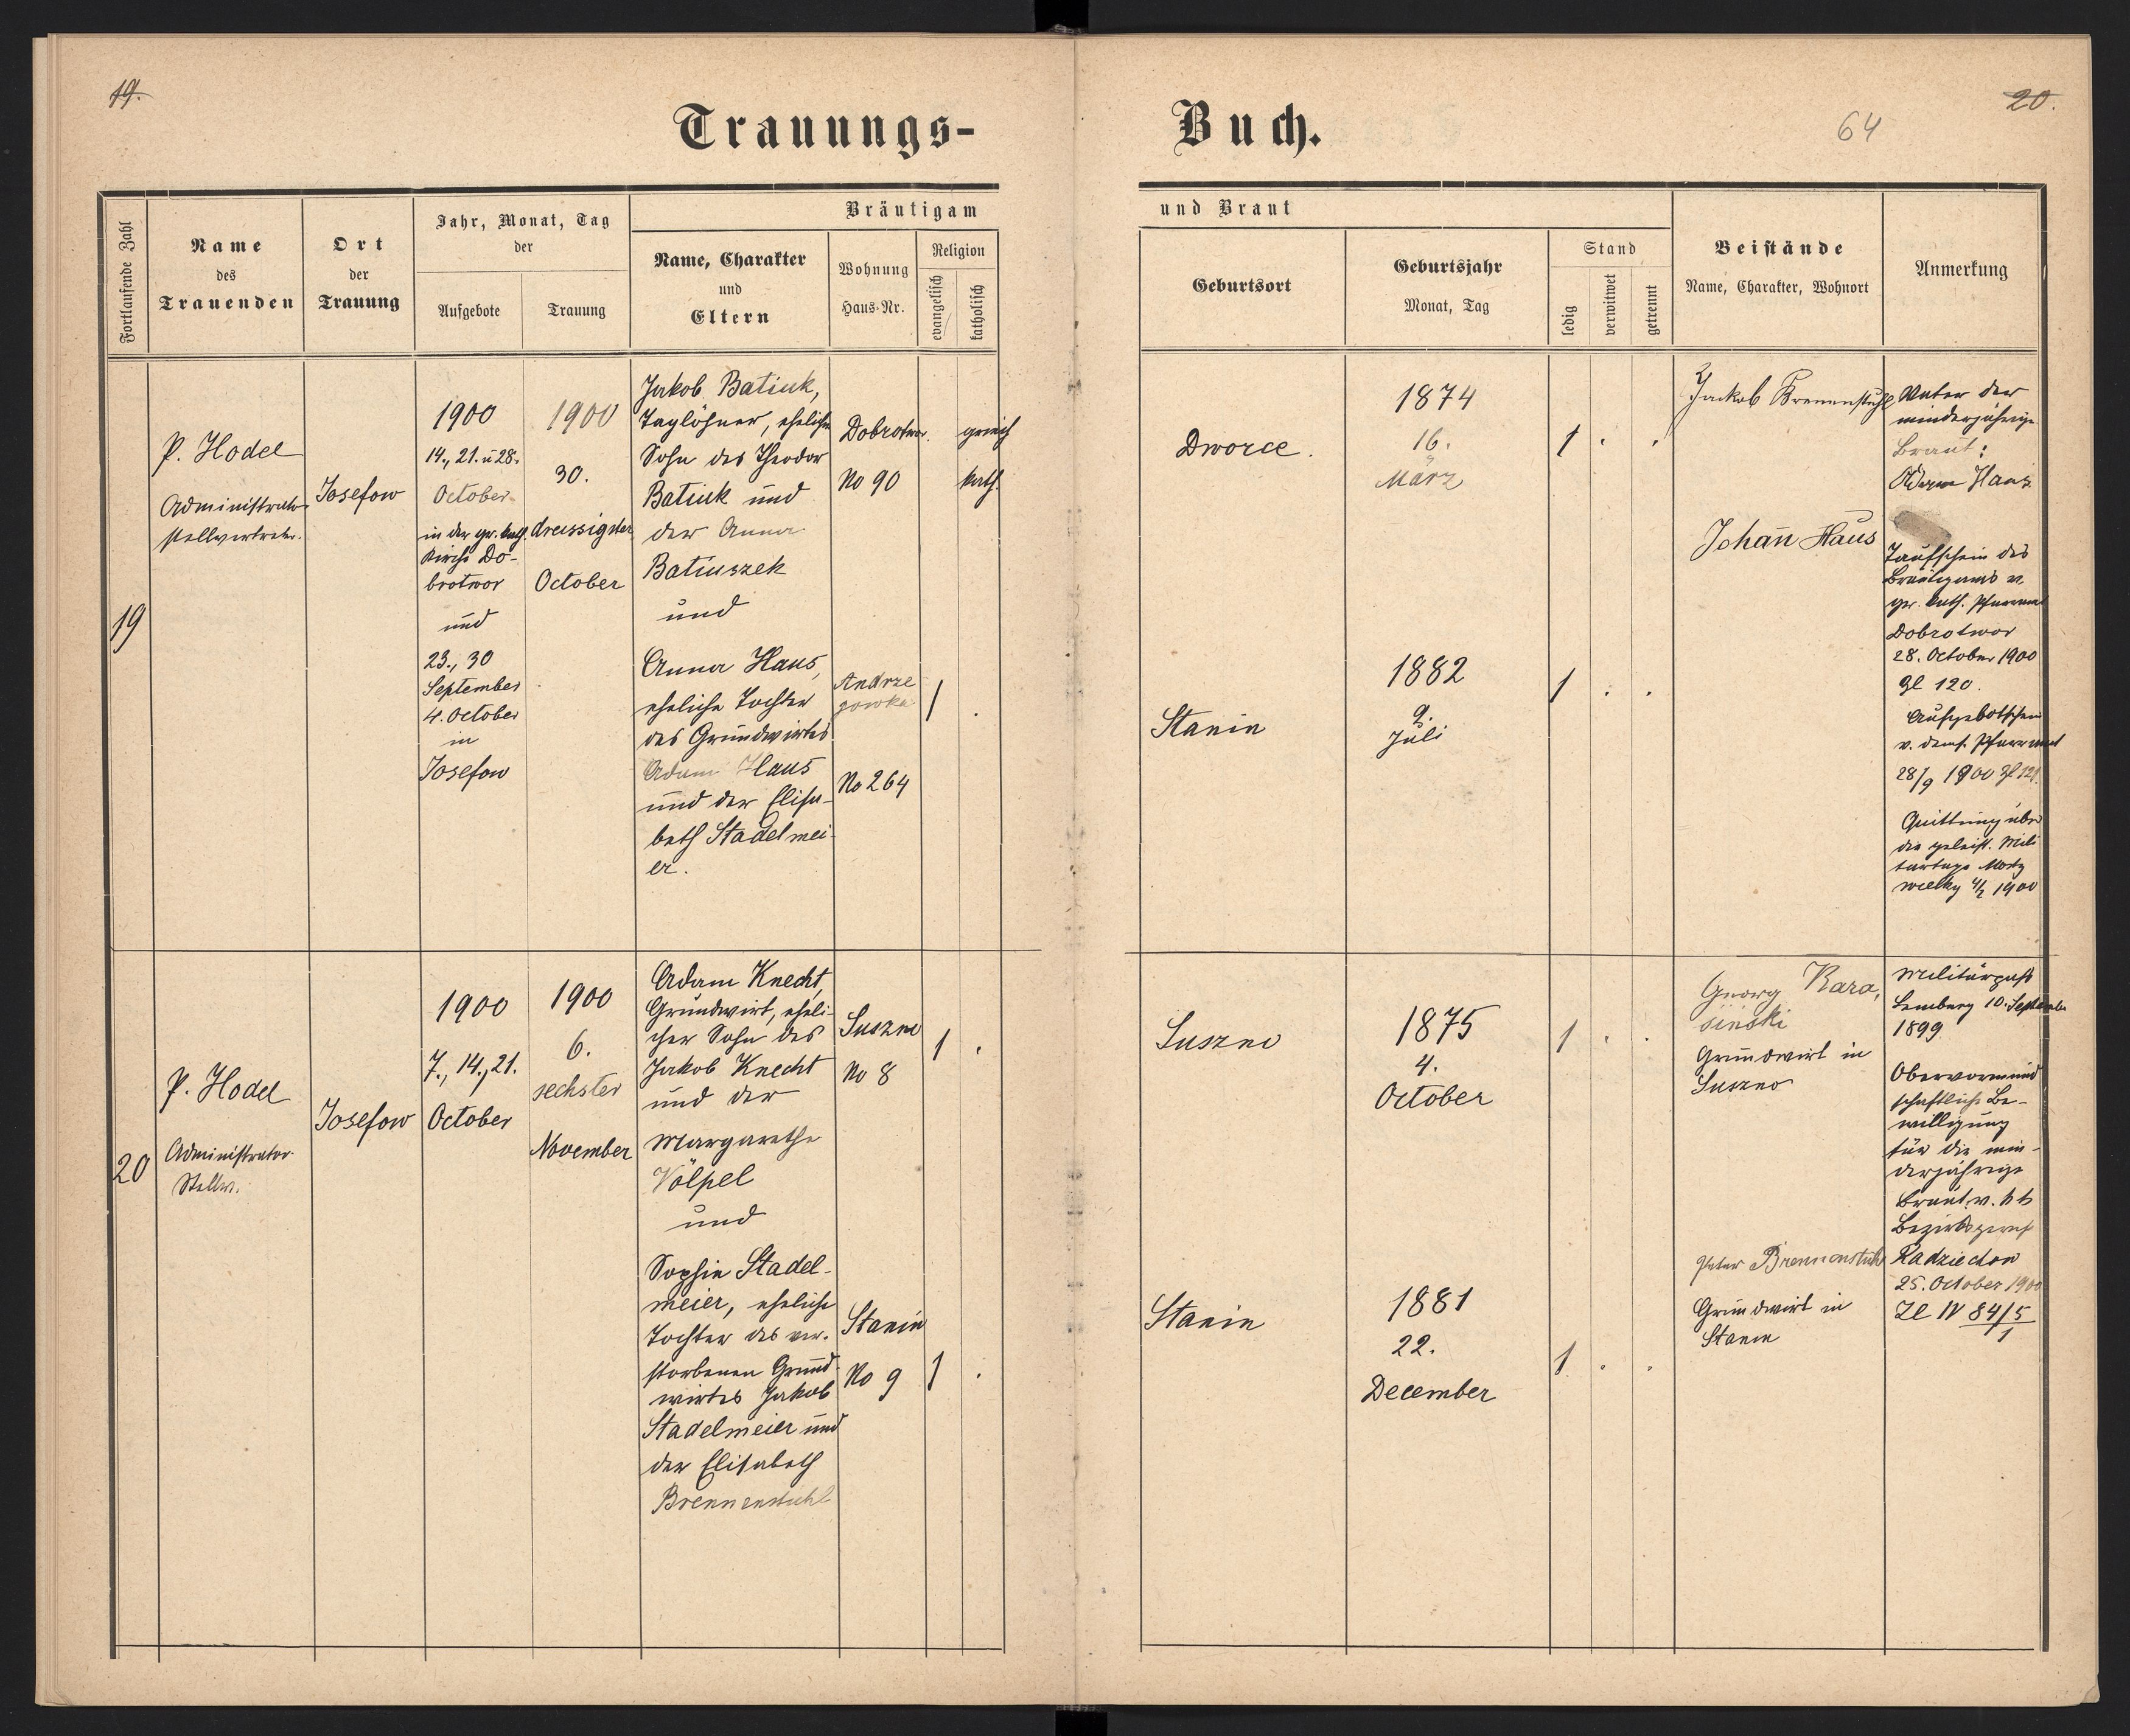 19.
20.
64
Trauungs-
Buch.
Fortlaufende Zahl
Name
des
Trauenden
Ort
der
Trauung
Jahr, Monat, Tag
der
Aufgebote
Trauung
Bräutigam
Name, Charakter
und
Eltern
Wohnung
Haus-Nr.
Religion
evangelisch
katholisch
und Braut
Geburtsort
Geburtsjahr
Monat, Tag
Stand
ledig
verwitwet
getrennt
Beistände
Name, Charakter, Wohnort
Anmerkung
19
P. Hodel
Administrator-
stellvertreter.
Josefow
1900
14., 21. u 28.
October
in der gr. kath.
Kirche Do-
brotwor
und
23., 30
September
4. October
in
Josefow
1900
30.
dreissigster
October
Jakob Batiuk,
Taglöhner, ehelicher
Sohn des Theodor
Batiuk und
der Anna
Batiuszek
und
Anna Haus,
eheliche Tochter
des Grundwirtes
Adam Haus
und der Elisa-
beth Stadelmei-
er.
Dobrotwor.
No 90
Andrze
jowka
No 264
griech
kath.
1
Dworce.
Stanin
1874
16.
März
1882
9.
Juli
1
1
Jackob Brennenstuhl
Johann Haus
Vater der
minderjährige
Braut:
Adam Haus
Taufschein des
Bräutigams v.
gr. kath. Pfarramt
Dobrotwor
28. October 1900
Zl 120.
Aufgebotschein
v. dems. Pfarramt
28/9 1900 Zl 121.
Quittung über
die geleist. Mili
tärtaxe Mosty
wielky 4/2 1900
20
P. Hodel
Administrator-
Stellv.
Josefow
1900
7., 14., 21.
October
1900
6.
sechster
November
Adam Knecht,
Grundwirt, eheli-
cher Sohn des
Jakob Knecht
und der
Margarethe
Völpel
und
Sophie Stadel-
meier, eheliche
Tochter des ver-
storbenen Grund-
wirtes Jakob
Stadelmeier und
der Elisabeth
Brennenstuhl
Suszno
No 8
Stanin
No 9
1
1
Suszno
Stanin
1875
4.
October
1881
22.
December
1
1
Georg Kara,
sinski
Grundwirt in
Suszno
Peter Brennenstuhl
Grundwirt in
Stanin
Militärpass
Lemberg 10. September
1899
Obervormund
schaftliche Be-
willigung
für die min-
derjährige
Braut v. k k
Bezirksgericht
Radziechow
25. October 1900
Zl IV 84/5
1